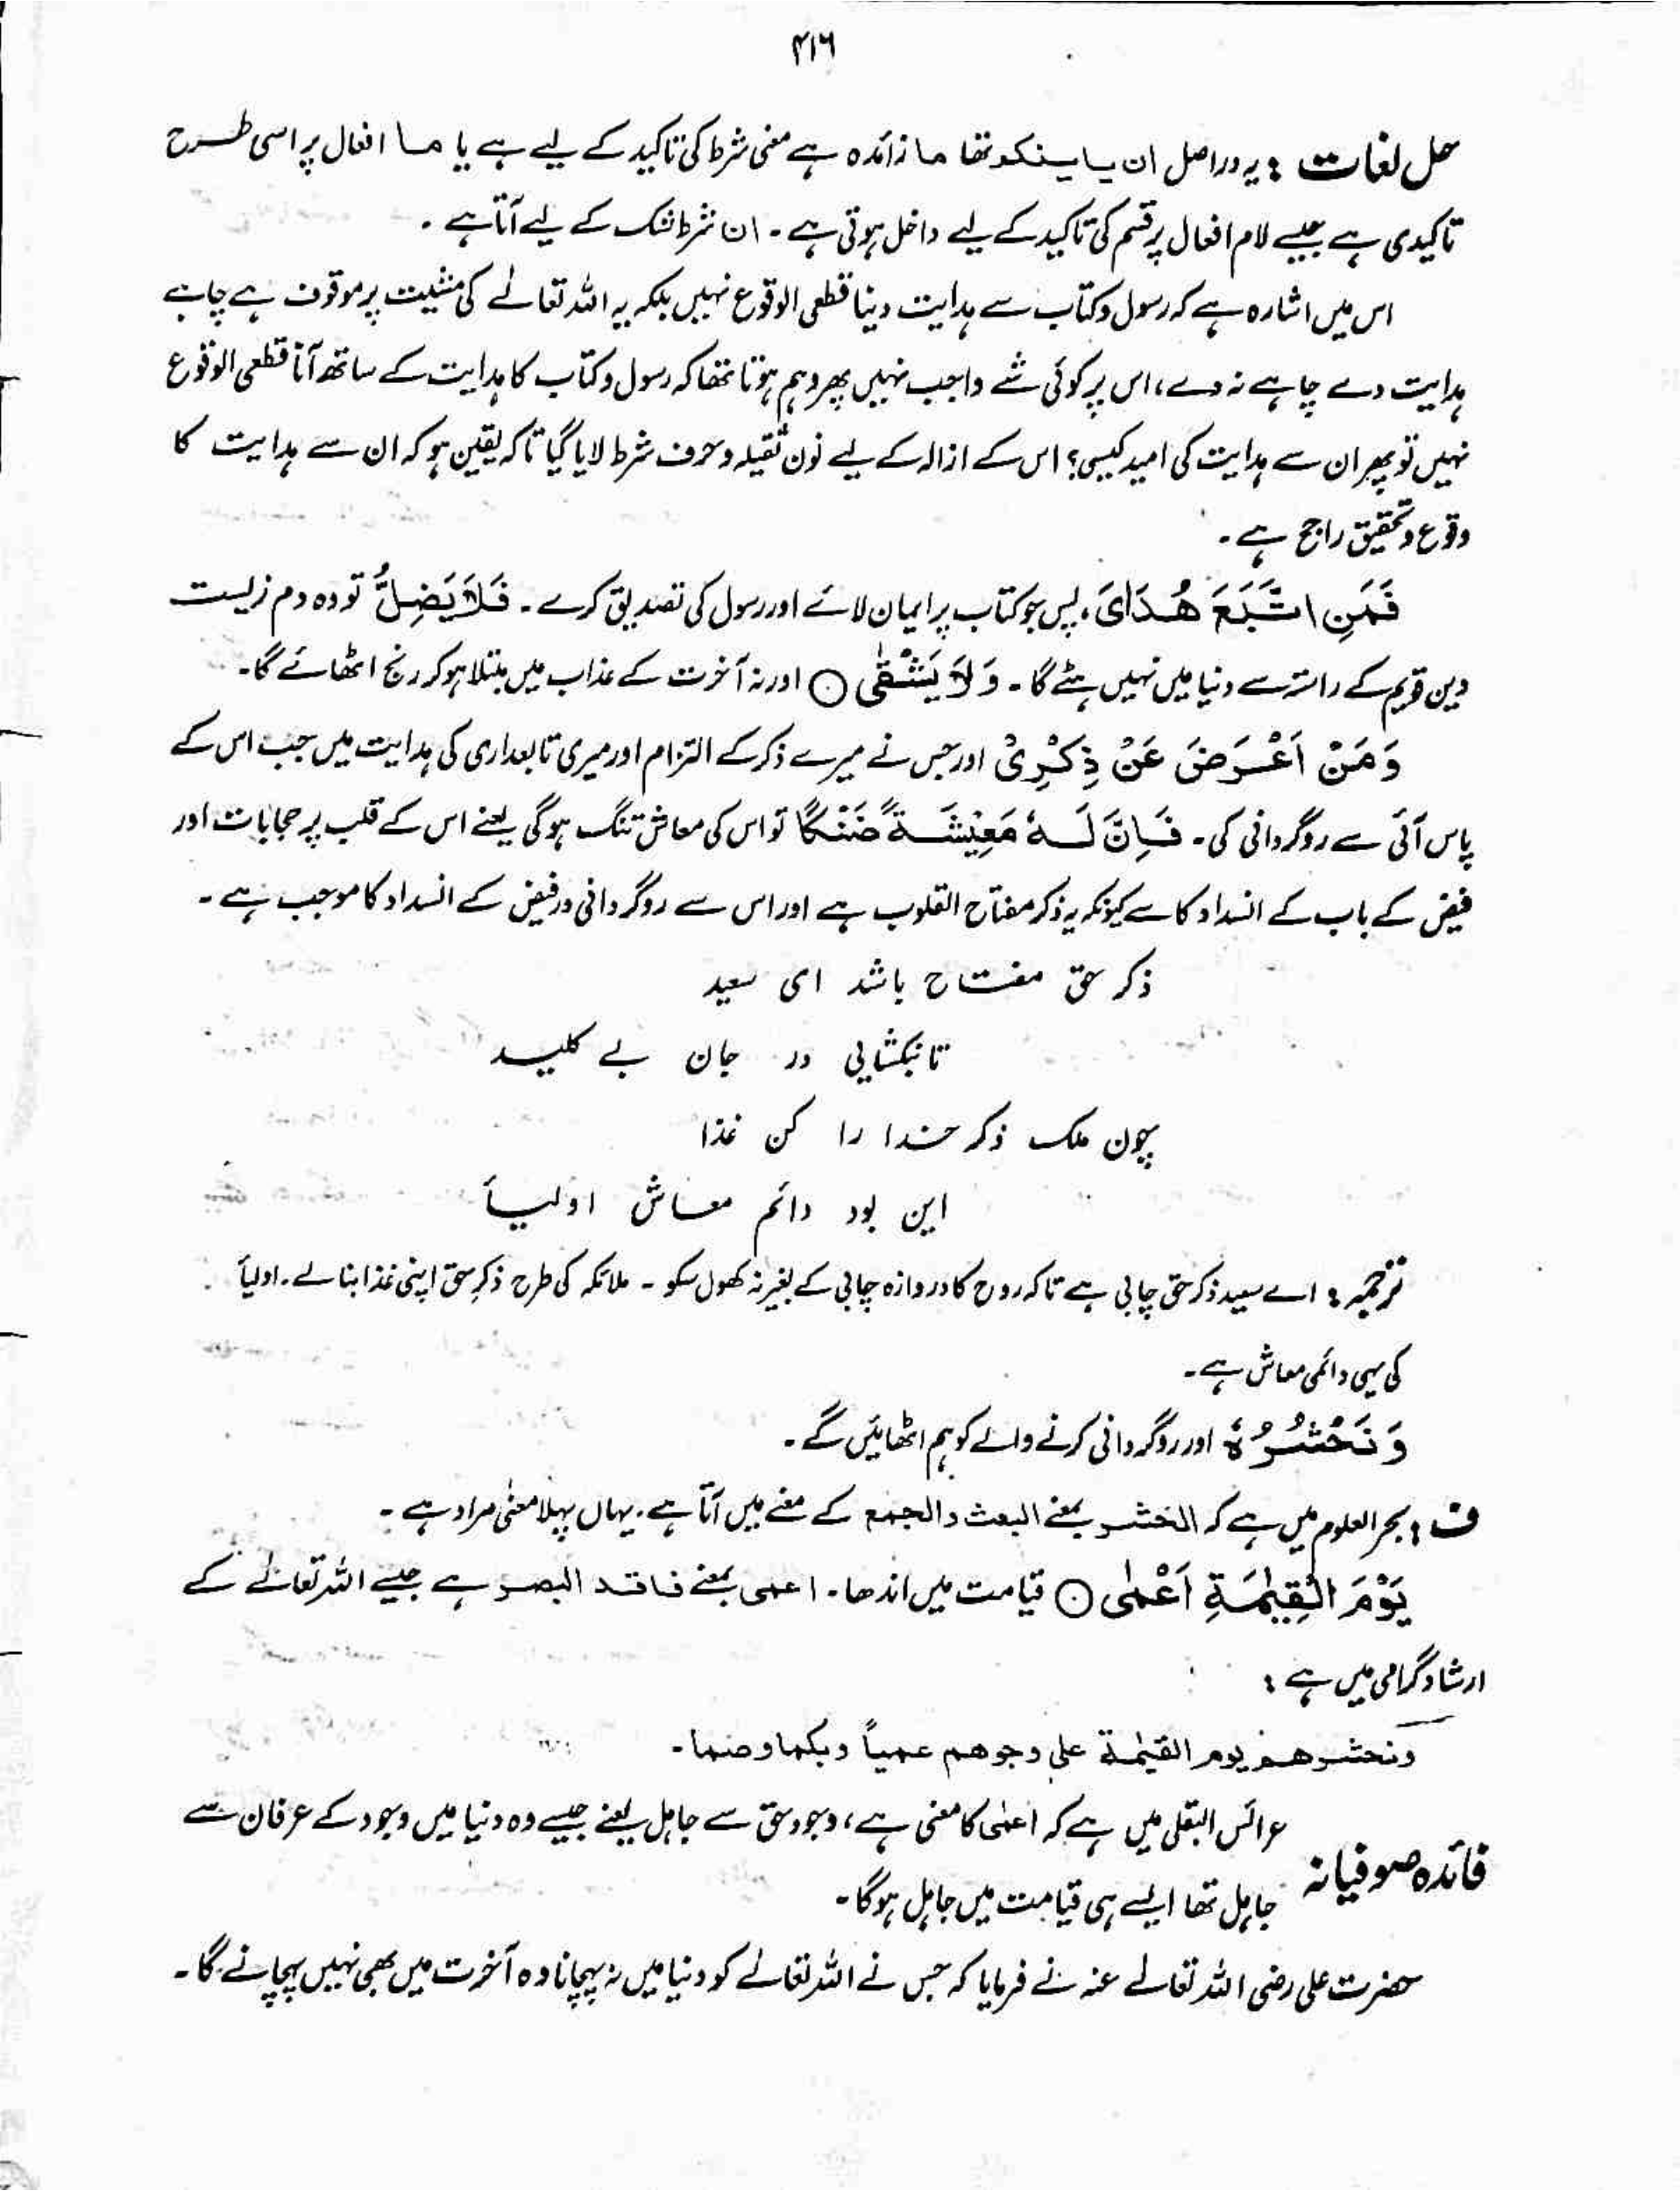 ۴۱۶
حل لغات : یہ دراصل ان یاتینکم تھا ما زائدہ ہے معنی شرط کی تاکید کے لیے ہے یا ما افعال پر اسی طرح
تاکیدی ہے جیسے لام افعال پر قسم کی تاکید کے لیے داخل ہوتی ہے ۔ ان شرط شک کے لیے آتا ہے ۔
اس میں اشارہ ہے کہ رسول و کتاب سے ہدایت دینا قطعی الوقوع نہیں بلکہ یہ اللہ تعالےٰ کی مشیت پر موقوف ہے چاہے
ہدایت دے چاہے نہ دے ، اس پر کوئی شے واجب نہیں پھر وہم ہوتا تھا کہ رسول و کتاب کا ہدایت کے ساتھ آنا قطعی الوقوع
نہیں تو پھر ان سے ہدایت کی امید کیسی ؟ اس کے ازالہ کے لیے نون ثقیلہ و حرف شرط لایا گیا تاکہ یقین ہو کہ ان سے ہدایت کا
وقوع و تحقیق راجح ہے ۔
فَمَنِ اتَّبَعَ هُدَایَ ، پس جو کتاب پر ایمان لائے اور رسول کی تصدیق کرے ۔ فَلَا یَضِلُّ تو وہ دم زیست
دین قویم کے راستہ سے دنیا میں نہیں ہٹے گا ۔ وَلَا یَشْقٰی ○ اور نہ آخرت کے عذاب میں مبتلا ہو کر رنج اٹھائے گا ۔
وَمَنْ اَعْرَضَ عَنْ ذِکْرِیْ اور جس نے میرے ذکر کے التزام اور میری تابعداری کی ہدایت میں جب اس کے
پاس آئی سے روگردانی کی ۔ فَاِنَّ لَـہٗ مَعِیْشَـةً ضَنْکًا تو اس کی معاش تنگ ہوگی یعنے اس کے قلب پر حجابات اور
فیض کے باب کے انسداد کا سے کیونکہ یہ ذکر مفتاح القلوب ہے اور اس سے روگردانی درفیض کے انسداد کا موجب ہے ۔
ذکر حق مفتاح باشد ای سعید
تا نکشایی در جان بے کلید
چون ملک ذکر خدا را کن غذا
این بود دائم معاش اولیأ
ترجمہ : اے سعید ذکر حق چابی ہے تاکہ روح کا دروازہ چابی کے بغیر نہ کھول سکو ۔ ملائکہ کی طرح ذکرِ حق اپنی غذا بنا لے ۔ اولیأ
کی یہی دائمی معاش ہے ۔
وَنَحْشُرُہٗ اور روگردانی کرنے والے کو ہم اٹھائیں گے ۔
ف : بحر العلوم میں ہے کہ الحشر بمعنے البعث والجمع کے معنے میں آتا ہے ، یہاں پہلا معنٰی مراد ہے ۔
یَوْمَ الْقِیٰمَةِ اَعْمٰی ○ قیامت میں اندھا ۔ اعمی بمعنے فاقد البصر ہے جیسے اللہ تعالےٰ کے
ارشاد گرامی میں ہے :
ونحشرھم یوم القیٰمة علی وجوھم عمیاً وبکما وصما ۔
فائدہ صوفیانہ عرائس البقلی میں ہے کہ اعمٰی کا معنی ہے ، وجودِ حق سے جاہل یعنے جیسے وہ دنیا میں وجود کے عرفان سے
جاہل تھا ایسے ہی قیامت میں جاہل ہوگا ۔
حضرت علی رضی اللہ تعالےٰ عنہ نے فرمایا کہ جس نے اللہ تعالےٰ کو دنیا میں نہ پہچانا وہ آخرت میں بھی نہیں پہچانے گا ۔